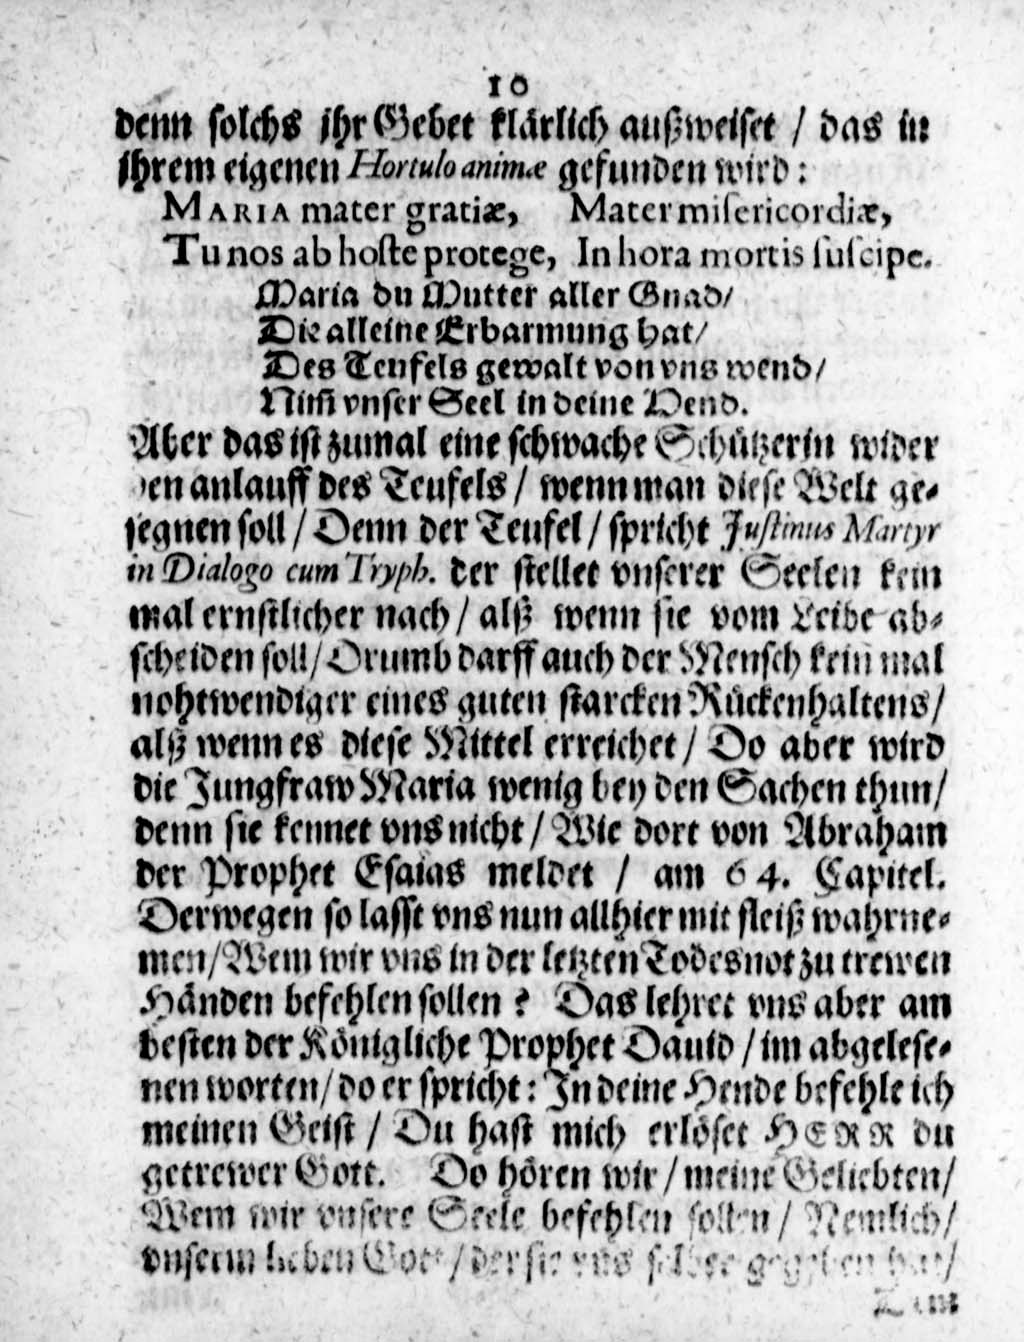 10
denn solchs jhr Gebet klärlich außweiset / das in
jhrem eigenen Hortulo animæ gefunden wird:
MARIA mater gratiæ, Mater misericordiæ,
Tu nos ab hoste protege, In hora mortis suscipe.
Maria du Mutter aller Gnad/
Die alleine Erbarmung hat/
Des Teufels gewalt von vns wend/
Nim̃ vnser Seel in deine Hend.
Aber das ist zumal eine schwache Schützerin wider
den anlauff des Teufels / wenn man diese Welt ge-
segnen soll / Denn der Teufel / spricht Justinus Martyr
in Dialogo cum Tryph. der stellet vnserer Seelen kein
mal ernstlicher nach / alß wenn sie vom Leibe ab-
scheiden soll / Drumb darff auch der Mensch kein mal
nohtwendiger eines guten starcken Rückenhaltens /
alß wenn es diese Mittel erreichet / Do aber wird
die Jungfraw Maria wenig bey den Sachen thun /
denn sie kennet vns nicht / Wie dort von Abraham
der Prophet Esaias meldet / am 64. Capitel.
Derwegen so lasst vns nun allhier mit fleiß wahrne-
men / Wem wir vns in der letzten Todesnot zu trewen
Händen befehlen sollen? Das lehret vns aber am
besten der Königliche Prophet Dauid / im abgelese-
nen worten / do er spricht: In deine Hende befehle ich
meinen Geist / Du hast mich erlöset HERR du
getrewer Gott. Do hören wir / meine Geliebten /
Wem wir vnsere Seele befehlen sollen / Nemlich /
vnserm lieben Gott / der sie vns selber gegeben hat /